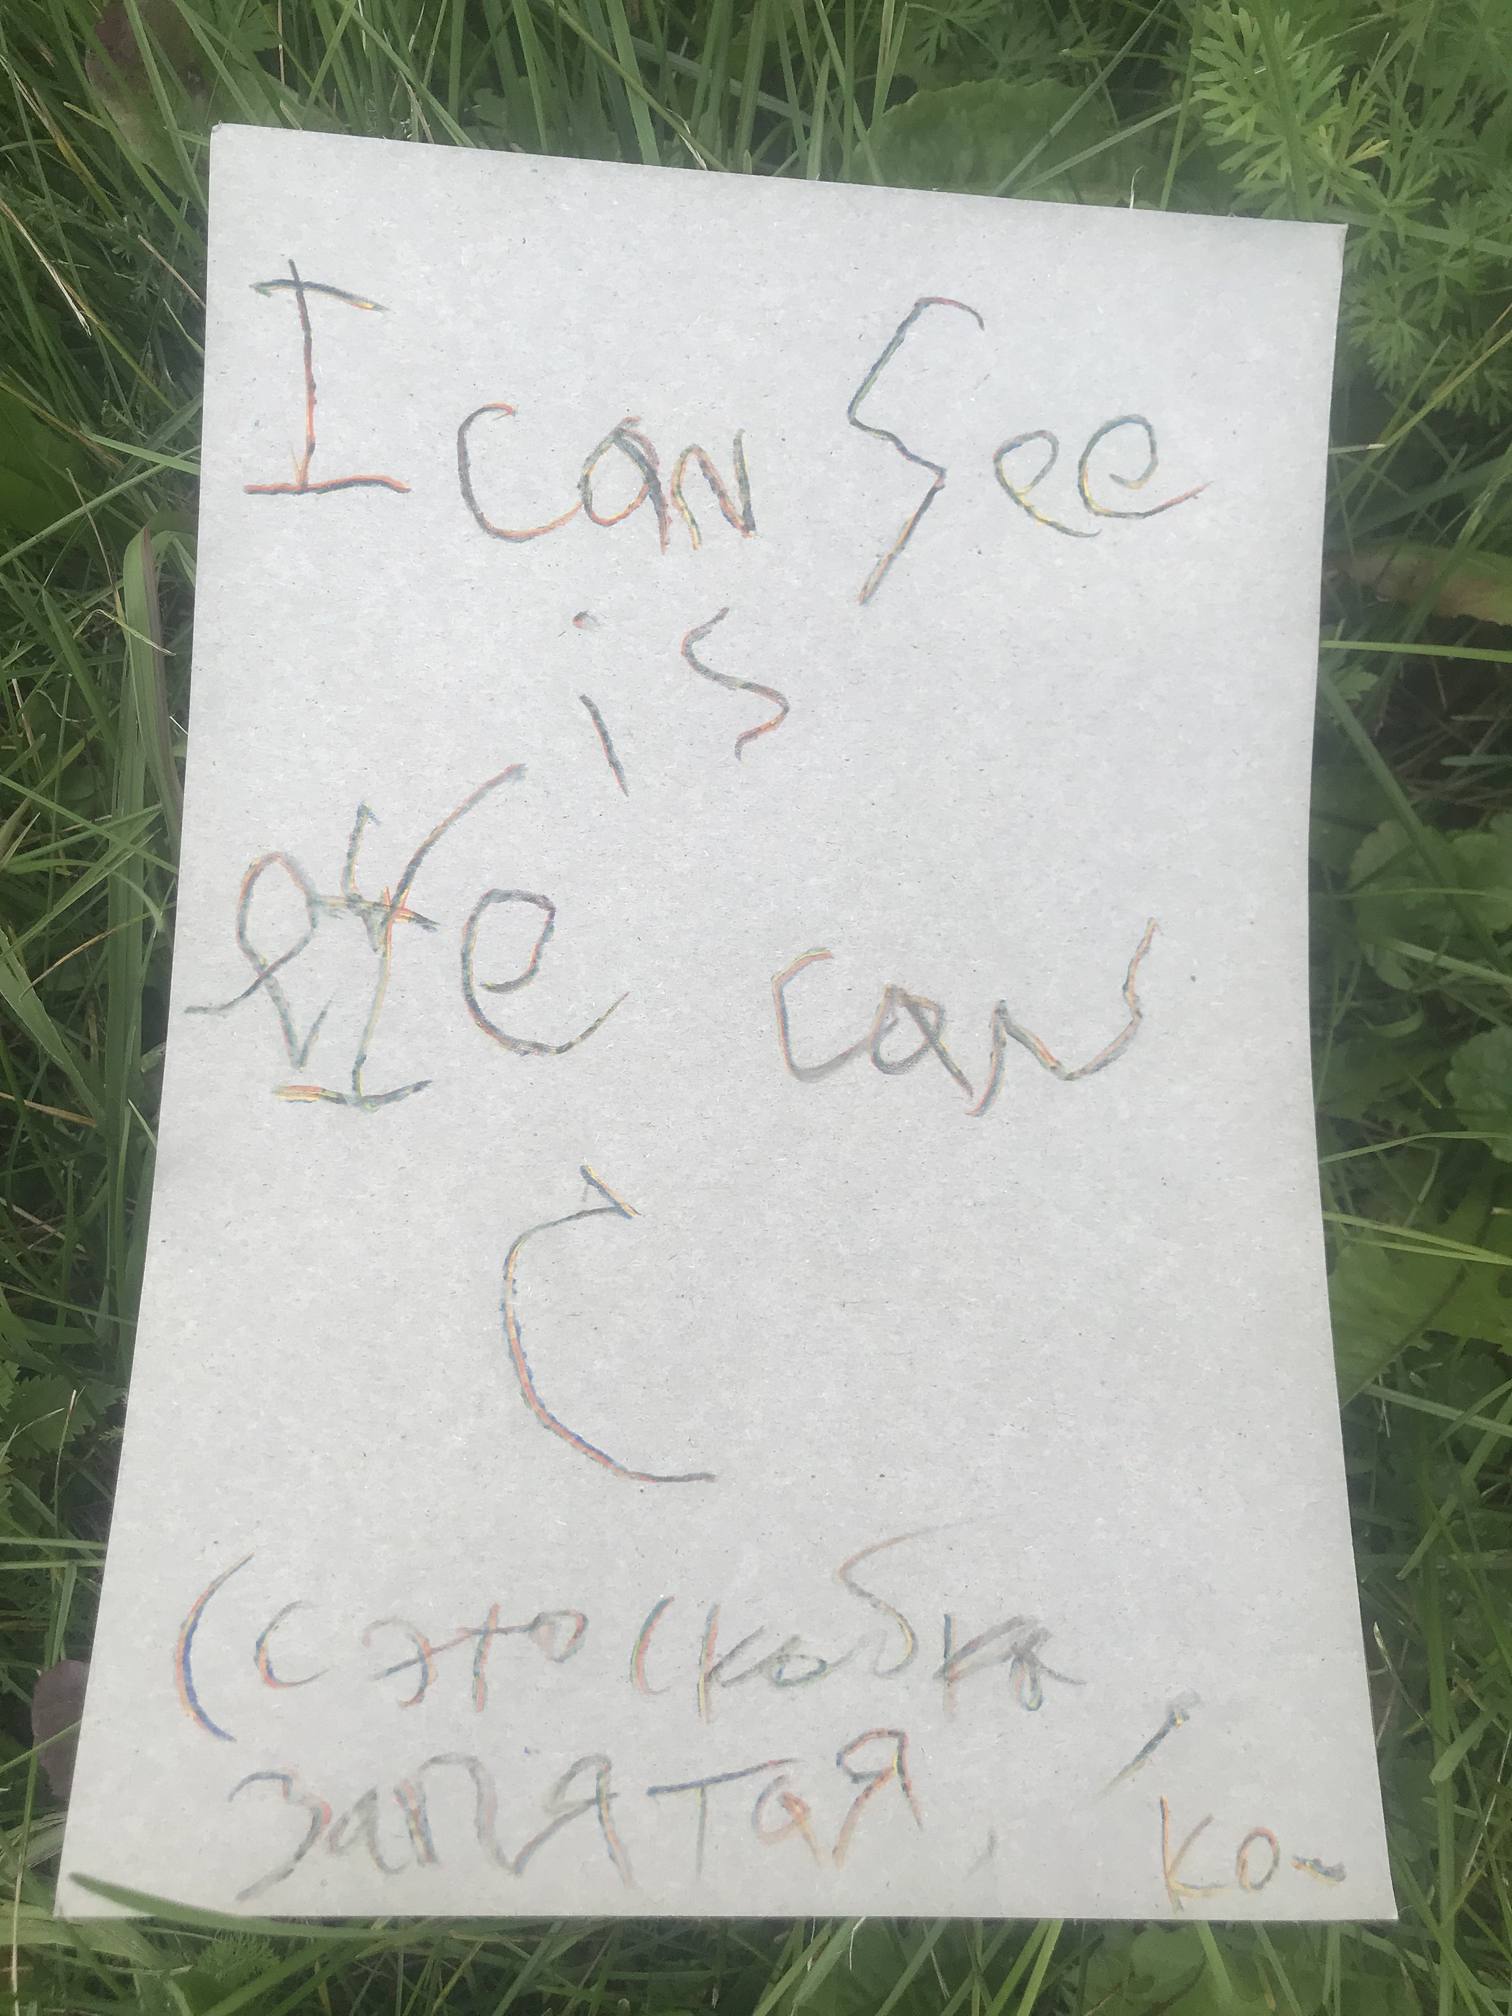 I can See
is
eye can
C
(с это скобка,
запятая, ко-